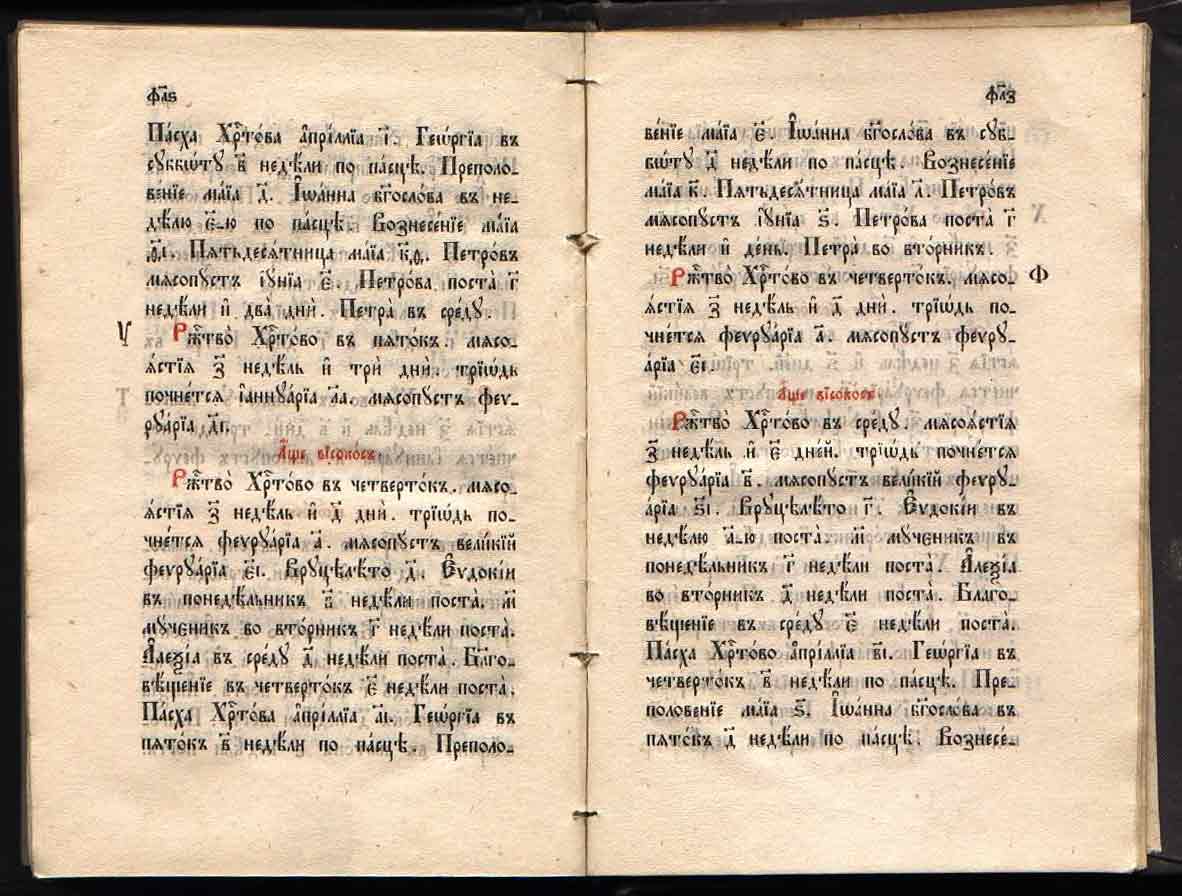 фл҃ѕ
Па́сха Хрⷭ҇то́ва а҆прі́ллїа і҃. Гео́ргїа въ
сꙋббѡ́тꙋ в҃ недѣ́ли по па́сцѣ. Преполо-
ве́нїе ма́їа д҃. І҆ѡа́нна бг҃осло́ва въ не-
дѣ́лю є҃-ю по па́сцѣ. Вознесе́нїе ма́їа
ѳ҃і. Пѧтьдесѧ́тница ма́їа к҃ѳ. Петро́въ
мѧсопꙋ́стъ і҆ꙋ́нїа є҃. Петро́ва поста̀ г҃
недѣ́ли и҆ два̀ дни̑. Петра̀ въ сре́дꙋ.
Ч
Ржⷭ҇тво̀ Хрⷭ҇то́во въ пѧто́къ. мѧсо-
ѧ́стїѧ з҃ недѣ́ль и҆ трѝ дни̑. трїѡ́дь
почне́тсѧ і҆аннꙋа́рїа л҃а. мѧсопꙋ́стъ фев-
рꙋа́рїа д҃і.
А҆́ще висо́косъ
Ржⷭ҇тво̀ Хрⷭ҇то́во въ четверто́къ. мѧсо-
ѧ́стїѧ з҃ недѣ́ль и҆ д҃ дни̑. трїѡ́дь по-
чне́тсѧ феврꙋа́рїа а҃. мѧсопꙋ́стъ вели́кїй
феврꙋа́рїа є҃і. Врꙋцѣлѣ́то д҃. Є҆ѵдокі́и
въ понедѣ́льникъ в҃ недѣ́ли поста̀. м҃
мꙋ́ченикъ во вто́рникъ г҃ недѣ́ли поста̀.
А҆леѯі́а въ сре́дꙋ д҃ недѣ́ли поста̀. Бл҃го-
вѣ́щенїе въ четверто́къ є҃ недѣ́ли поста̀.
Па́сха Хрⷭ҇то́ва а҆прі́ллїа а҃і. Гео́ргїа въ
пѧто́къ в҃ недѣ́ли по па́сцѣ. Преполо-
фл҃з
ве́нїе ма́їа є҃. І҆ѡа́нна бг҃осло́ва въ сꙋб-
бѡ́тꙋ д҃ недѣ́ли по па́сцѣ. Вознесе́нїе
ма́їа к҃. Пѧтьдесѧ́тница ма́їа л҃. Петро́въ
мѧсопꙋ́стъ і҆ꙋ́нїа ѕ҃. Петро́ва поста̀ г҃
недѣ́ли и҆ де́нь. Петра̀ во вто́рникъ.
Ржⷭ҇тво̀ Хрⷭ҇то́во въ четверто́къ. мѧсо-
Ф
ѧ́стїѧ з҃ недѣ́ль и҆ д҃ дни̑. трїѡ́дь по-
чне́тсѧ феврꙋа́рїа а҃. мѧсопꙋ́стъ феврꙋ-
а́рїа є҃і.
А҆́ще висо́косъ
Ржⷭ҇тво̀ Хрⷭ҇то́во въ сре́дꙋ. мѧсоѧ́стїѧ
з҃ недѣ́ль и҆ є҃ дне́й. трїѡ́дь почне́тсѧ
феврꙋа́рїа в҃. мѧсопꙋ́стъ вели́кїй феврꙋ-
а́рїа ѕ҃і. Врꙋцѣлѣ́то г҃. Є҆ѵдокі́и въ
недѣ́лю д҃-ю поста̀. м҃ мꙋ́ченикъ въ
понедѣ́льникъ г҃ недѣ́ли поста̀. А҆леѯі́а
во вто́рникъ д҃ недѣ́ли поста̀. Благо-
вѣ́щенїе въ сре́дꙋ є҃ недѣ́ли поста̀.
Па́сха Хрⷭ҇то́во а҆прі́ллїа в҃і. Гео́ргїа въ
четверто́къ в҃ недѣ́ли по па́сцѣ. Пре-
полове́нїе ма́їа ѕ҃. І҆ѡа́нна бг҃осло́ва въ
пѧто́къ д҃ недѣ́ли по па́сцѣ. Вознесе́-